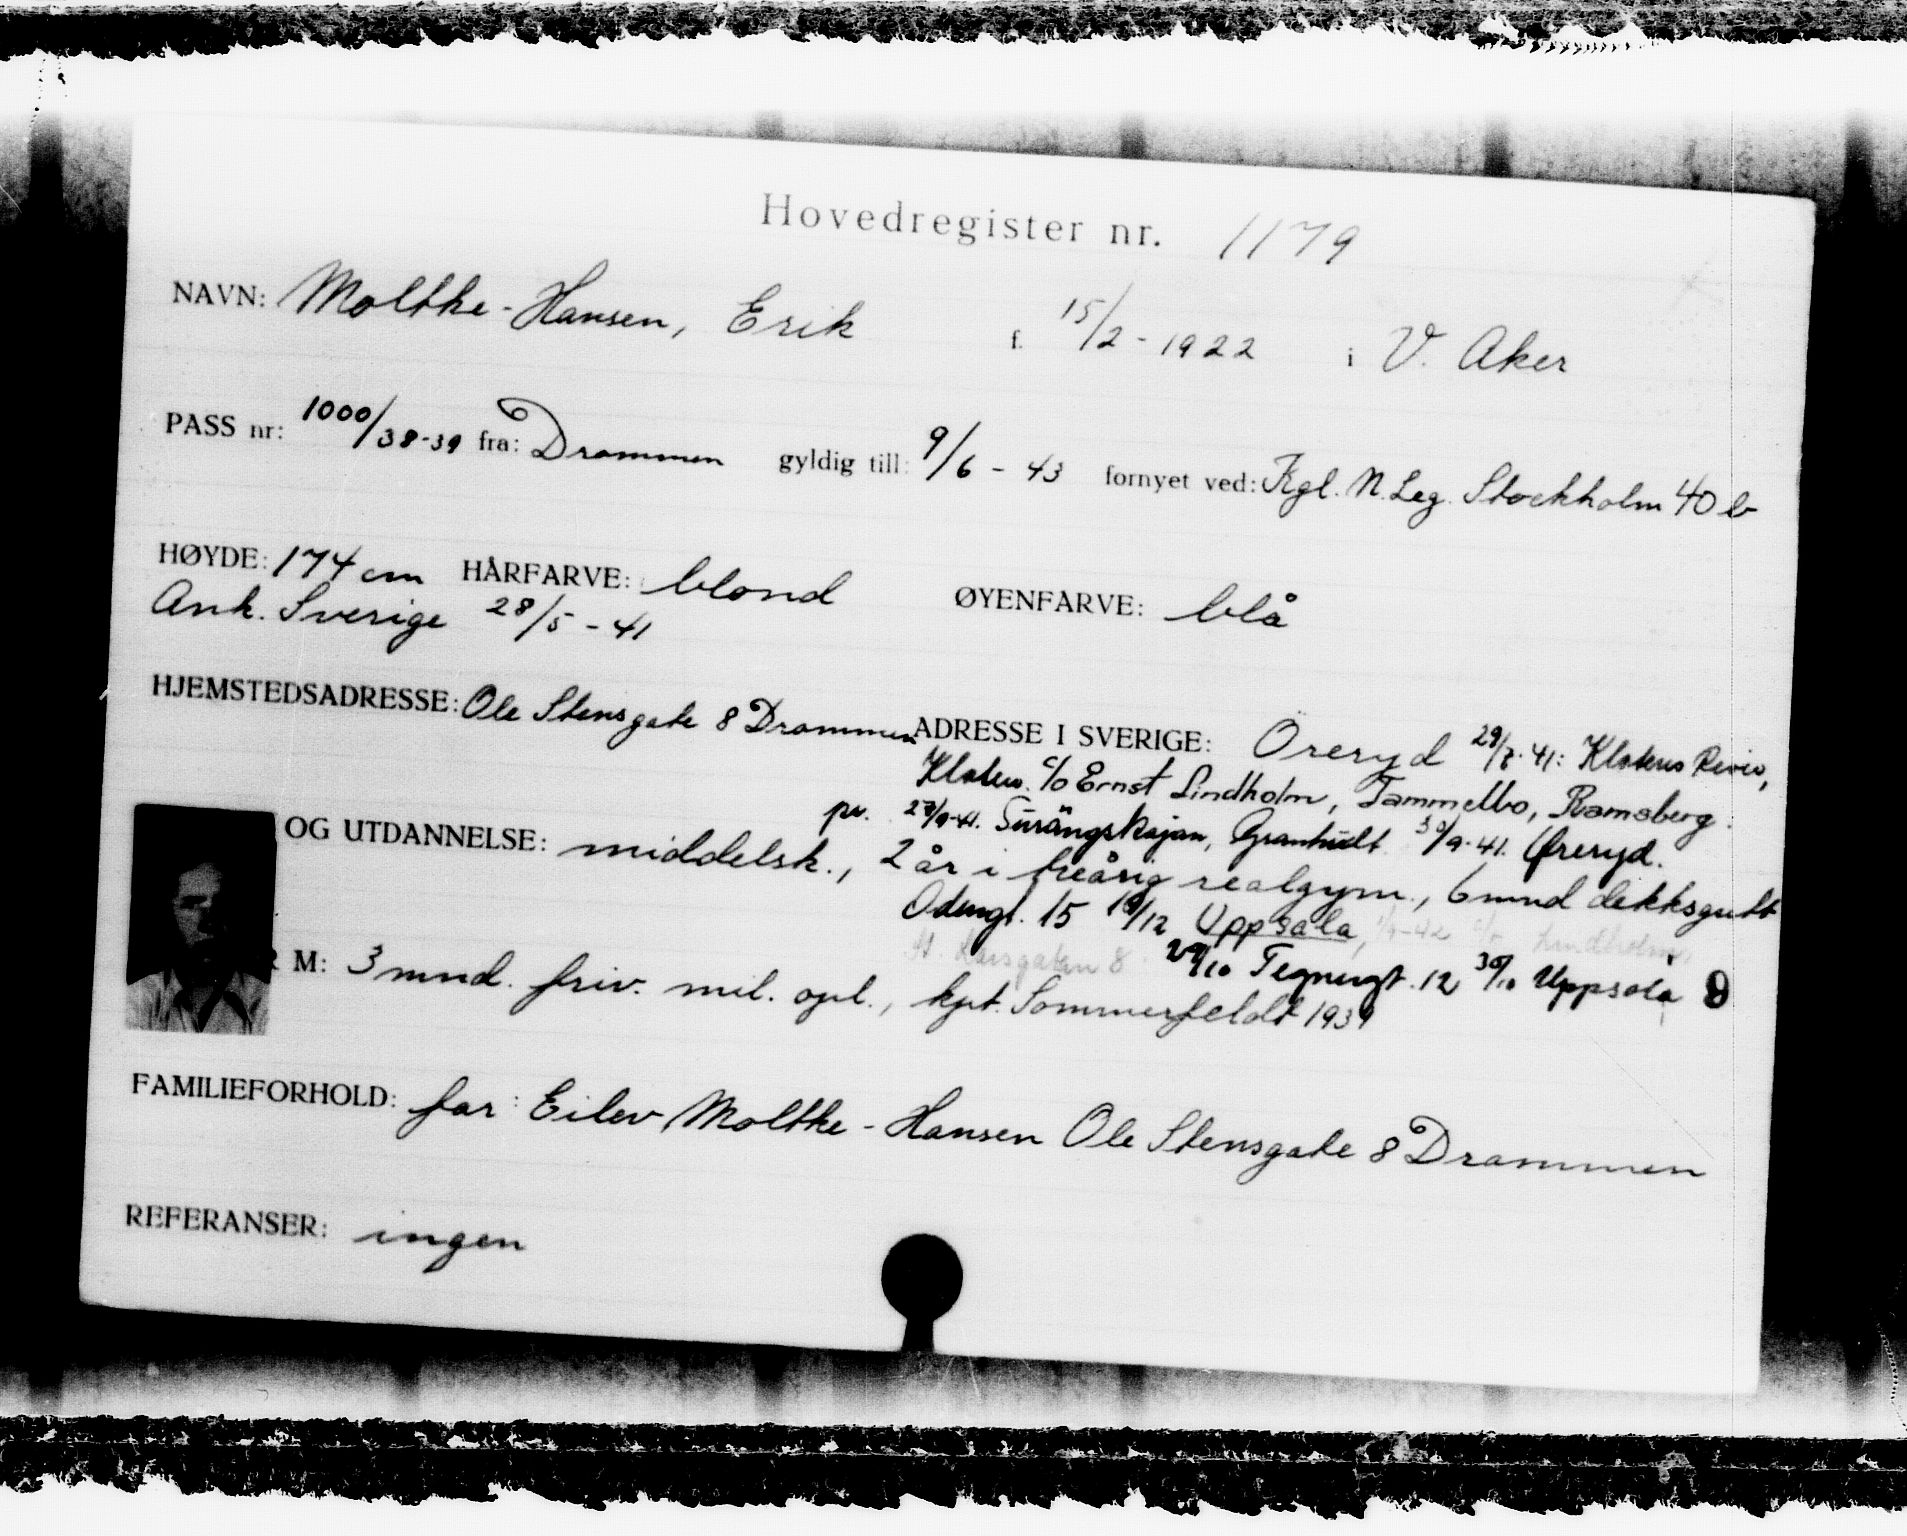 Hovedregister nr. 1179
NAVN: Moltke-Hansen, Erik f. 15/2-1922 i V. Aker
PASS nr: 1000/38-39 fra: Drammen gyldig till: 9/6-43 fornyet ved: Kgl. N. Leg. Stockholm 40 b
HØYDE: 174 cm HÅRFARVE: blond ØYENFARVE: blå
Ank. Sverige 28/5-41
HJEMSTEDSADRESSE: Ole Stensgate 8 Drammen ADRESSE I SVERIGE: Öreryd 29/7-41: Klotens Revir,
Kloten. c/o Ernst Lindholm, Tammelbo, Ramsberg.
pr. 27/9-41. Granhult 30/9-41. Øreryd.
OG UTDANNELSE: middelsk., 2 år i treårig realgym., 6 mnd dekksgutt
Odengt. 15 18/12 Uppsala, Lindholm
Larsgatan 8 29/10 Tegnergt. 12 30/10 Uppsala
R M: 3 mnd. friv. mil. opl., kpt. Sommerfeldt 1939
FAMILIEFORHOLD: far: Eilev Moltke-Hansen Ole Stensgate 8 Drammen
REFERANSER: ingen